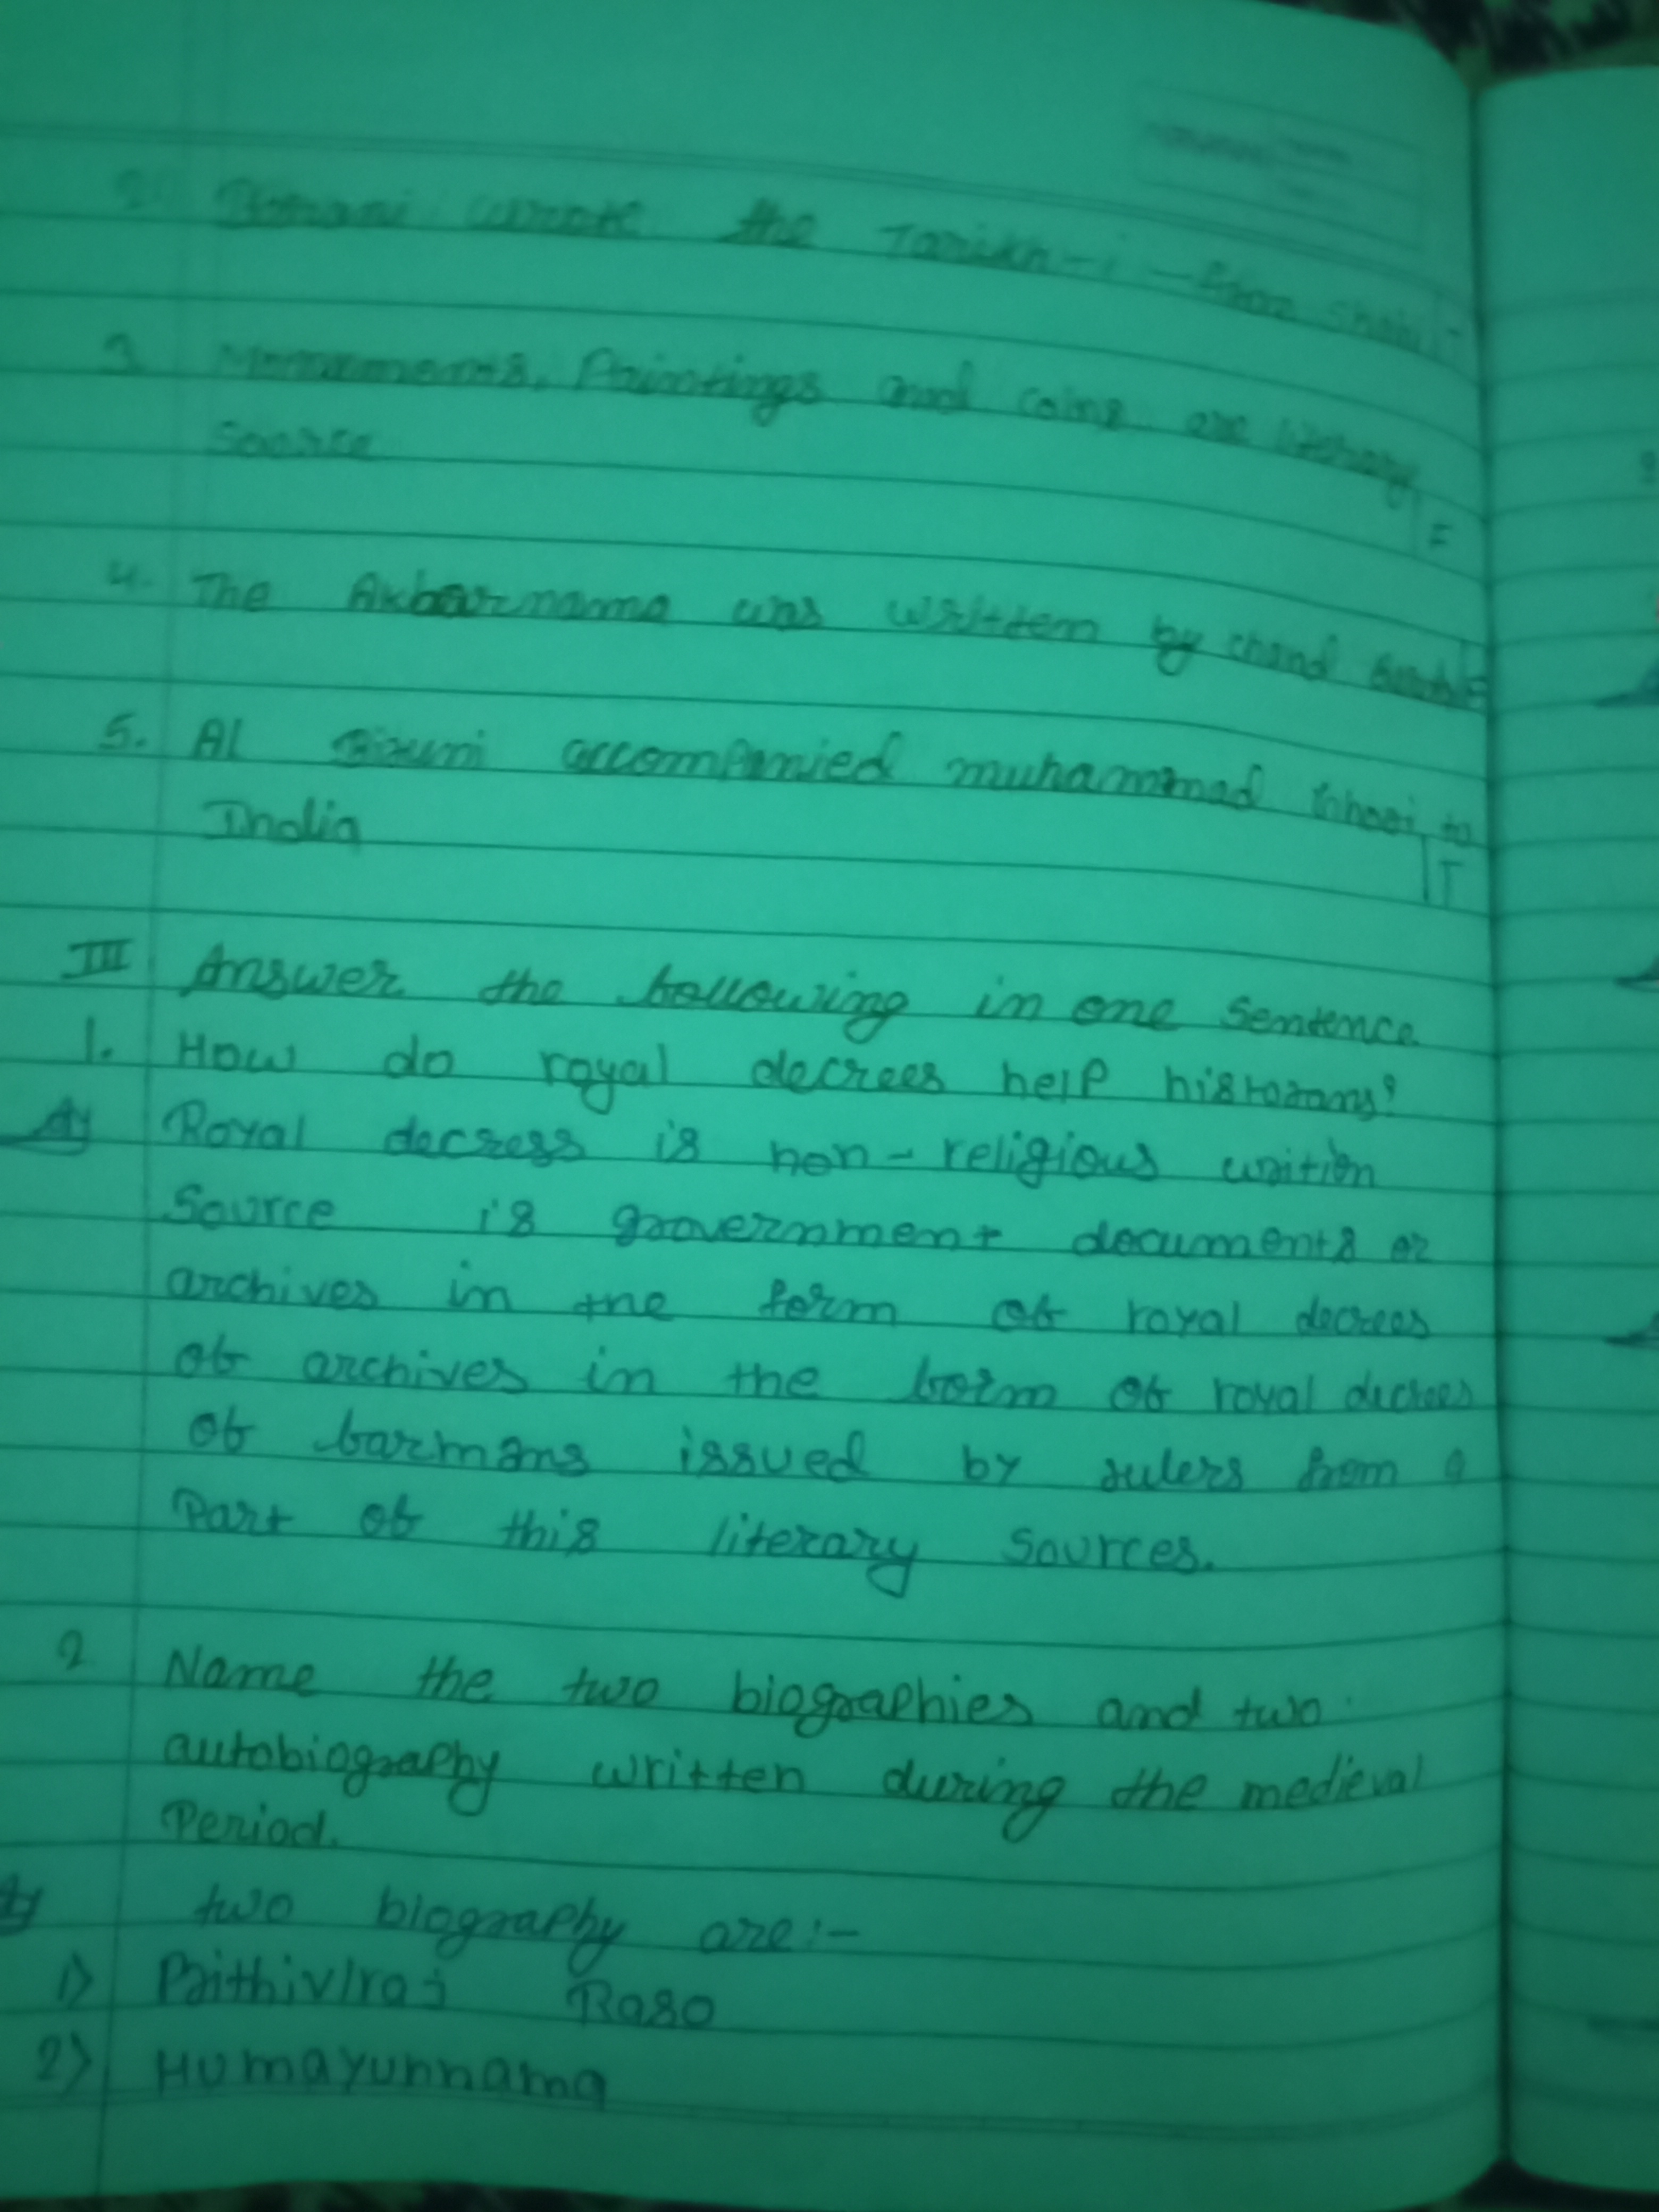 2. wrote the Tarikh-i-
3 Monuments, Paintings and coins are literary
Source
F
4. The Akbarnama was writtem by chand
5. Al Biruni accompanied muhammad to
India
T
III Answer the following in one Sentence.
1. How do royal decrees help
A) Royal decress is non-religious
Source is government documents or
archives in the form of royal decrees
of archives in the form of royal decrees
of farmans issued by rulers from a
Part of this literary Sources.
2 Name the two biographies and two
autobiography written during the medieval
Period.
A) two biography are:-
1) Prithiviraj Raso
2) Humayunnama